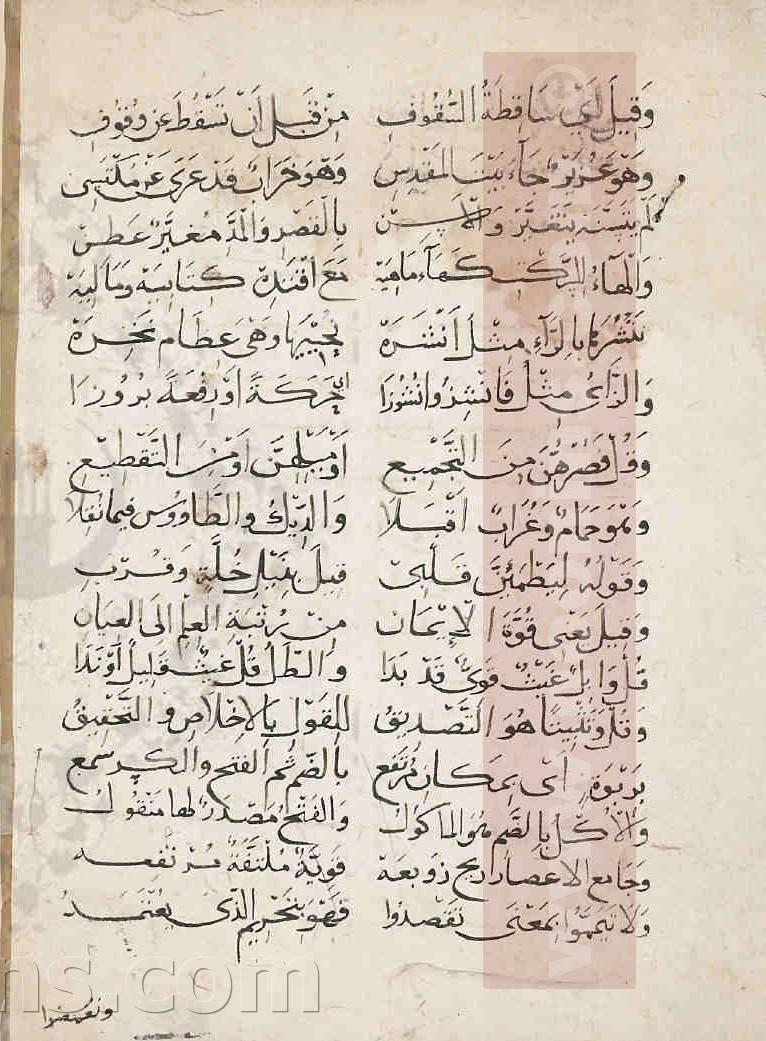 وَقِيلَ أَيْ سَاقِطَةُ السُّقُوفِ مِنْ قَبْلِ أَنْ تَسْقُطَ عَنْ وُقُوفِ
وَهْوَ عُزَيْرٌ جَآءَ بَيْتَ المَقْدِسِ وَهْوَ خَرَابٌ قَدْ عَرَى عَنْ مَلْبَسِ
لَمْ يَتَسَنَّهْ يَتَغَيَّرْ بِالْقَصْرِ وَالْمَدِّ مُغَيَّرٌ عَطِنْ
وَالْهَآءُ لِلسَّكْتِ كَهَآءِ مَاهِيَهْ مَعَ اقْتَدِهْ كِتَابِيَهْ وَمَالِيَهْ
نَنْشُرُهَا بِالرَّآءِ مِثْلُ أَنْشَرَهْ يُحْيِيهَا وَهْيَ عِظَام نَخِرَهْ
وَالزَّايُ مِثْلُ فَانْشِزُوا نُشُوزَا اي حَرَكَةً أَوْ رِفْعَةً بُرُوزَا
وَقُلْ فَصُرْهُنَّ مِنَ التَّجْمِيعِ أَوْ مَيْلِهِنَّ أَوْ مِنَ التَّقْطِيعِ
وَهْوَ حَمَامٌ وَغُرَابٌ أَقْبَلَا وَالدِّيكُ والطَّاوُوسُ فِيمَا نُقِلَا
وَقَوْلُهُ لِيَطْمَئِنَّ قَلْبِي قِيلَ بِنَيْلِ خُلَّةٍ وَقُرْبِ
وَقِيلَ يَعْنِي قُوَّةَ الْإِيْمَانِ مِنْ رُتْبَةِ العِلْمِ الَى العِيَانِ
قُلْ وَابِلٌ غَيْثٌ قَوِيٌّ قَدْ بَدَا وَالطَّلُّ قُلْ غَيْثٌ قَلِيلٌ أَوْ نَدَا
وَقُلْ وَتَثْبِيتًا هُوَ التَّصْدِيقُ لِلْقَوْلِ بِالإِخْلَاصِ وَالتَّحْقِيقُ
بِرَبْوَةٍ أَيْ بِمَكَانٍ مُرْتَفِعْ بِالضَّمِّ ثُمَّ الْفَتْحِ وَالْكَسْرِ سُمِعْ
وَالأُكْلُ بِالضَّمِ هُوَ المَاكُولُ وَالفَتْحُ مَصْدَرٌ لَهَا مَنْقُولُ
وَجَامِع الاعصار ريح زوبعة قَوِيَّةٌ مُلْتَفَّةٌ مُرْتَفِعه
وَلَا تَيَمَّمُوا بِمَعْنَى تَقْصِدُوا فَهْوَ بِتَحْرِيمِ الَّذِي يُعْتَمَدُ
وتغمضوا